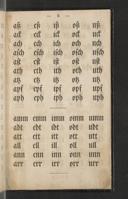 aß eß iß oß uß
ack eck ick ock uck
ach ech ich och uch
asch esch isch osch usch
ast est ist ost ust
ath eth ith oth uth
atz etz itz otz utz
apf epf ipf opf upf
aph eph iph oph uph
amm emm imm omm umm
adt edt idt odt udt
att ett itt ott utt
all ell ill oll ull
ann enn inn onn unn
arr err irr orr urr